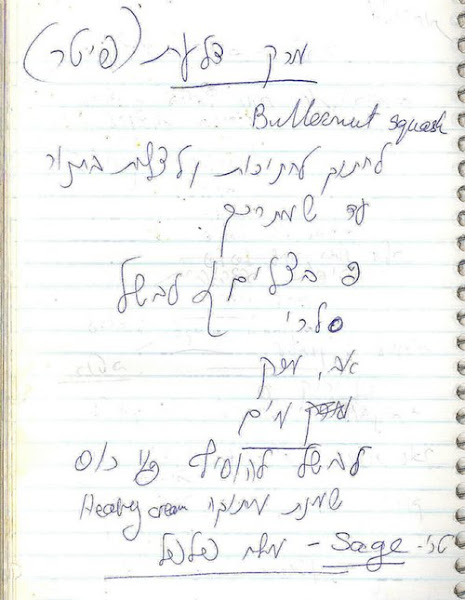 מרק דלעת (פיטר)
Butternut squash
לחתוך לחתיכות ולצלות בתנור
עד שמתרכך
בצלים } לבשל
סלרי
אב. מרק
מים
לבשל להוסיף כוס
שמנת מתוקה Heavey cream
Sage - מלח פלפל